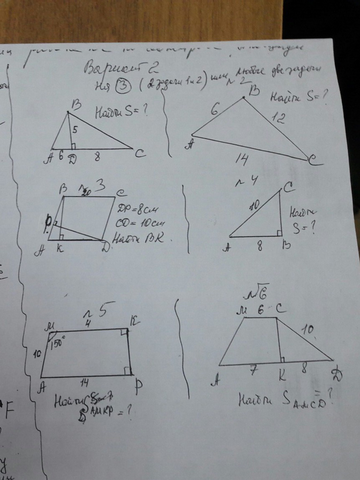 Вариант 2
На ③ (2 задачи 1 и 2) или любые две задачи
Найти S = ?
B
5
A 6 D 8 C
№ 2
Найти S = ?
B
6
12
A
14
C
№ 3
B
C
DP = 8 см
CD = 10 см
Найти BK.
A K D
№ 4
C
10
Найти
S = ?
A 8 B
№ 5
M 4 K
150°
10
A 14 P
Найти
S AMKP = ?
№ 6
M 6 C
10
A 7 K 8 D
Найти S AMCD = ?
F